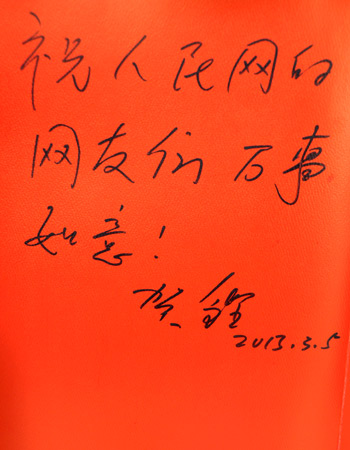 祝人民网的
网友们万事
如意!
贺铿
2013.3.5